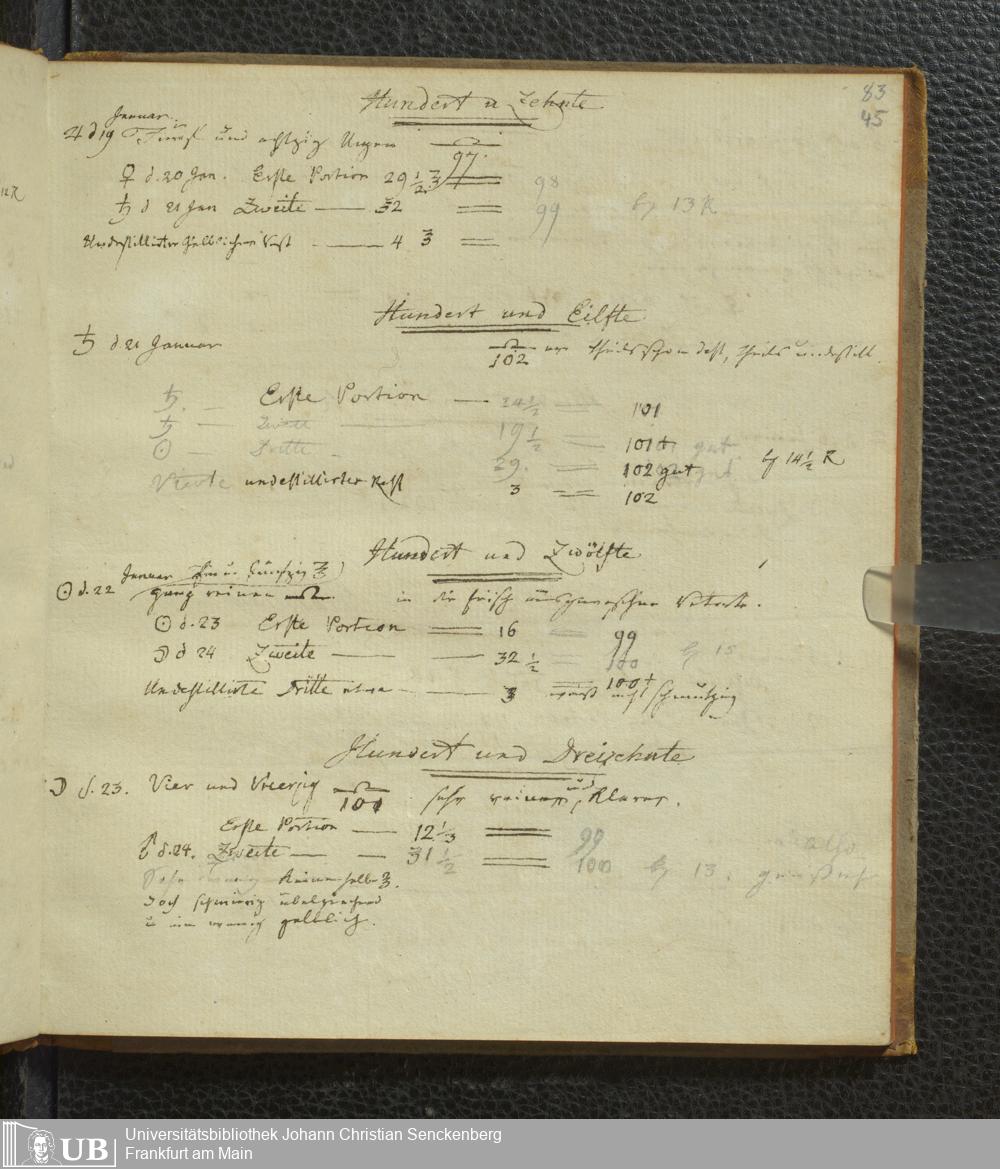 83
45
Hundert u Zehnte
Januar
♃ d 19 Fünf und achtzig Unzen
97.
♀ d. 20 Jan. Erste Portion 29 1/2 ℥ 98
♄ d 21 Jan Zweite — 32 = 99 13 R
Undestillirter gelblicher Rest — 4 ℥ =
Hundert und Eilfte
♄ d. 21 Januar
102 theils undestill.
♄. — Erste Portion — 24 1/2 = 101
♄ — Zweite — 19 1/2 = 101 + gut
☉ — Dritte — 29. = 102 gut 14 1/2 R
Vierte undestillirter Rest 3 = 102
Hundert und Zwölfte
Januar
☉ d. 22 ganz reinen in die frisch Retorte.
☉ d. 23 Erste Portion = 16 = 99
☽ d 24 Zweite — 32 1/2 = 100 15
Undestillirte Dritte etwa — 3 100 + schmutzig
Hundert und Dreizehnte
☽ d. 23. Vier und Vierzig 101 sehr reines und klares.
Erste Portion — 12 1/3 = 99
♂ d. 24. Zweite — 31 1/2 = 100 13.
keine halbe ℥.
doch schmierig übelriechend
u ein wenig gelblich.
UB
Universitätsbibliothek Johann Christian Senckenberg
Frankfurt am Main